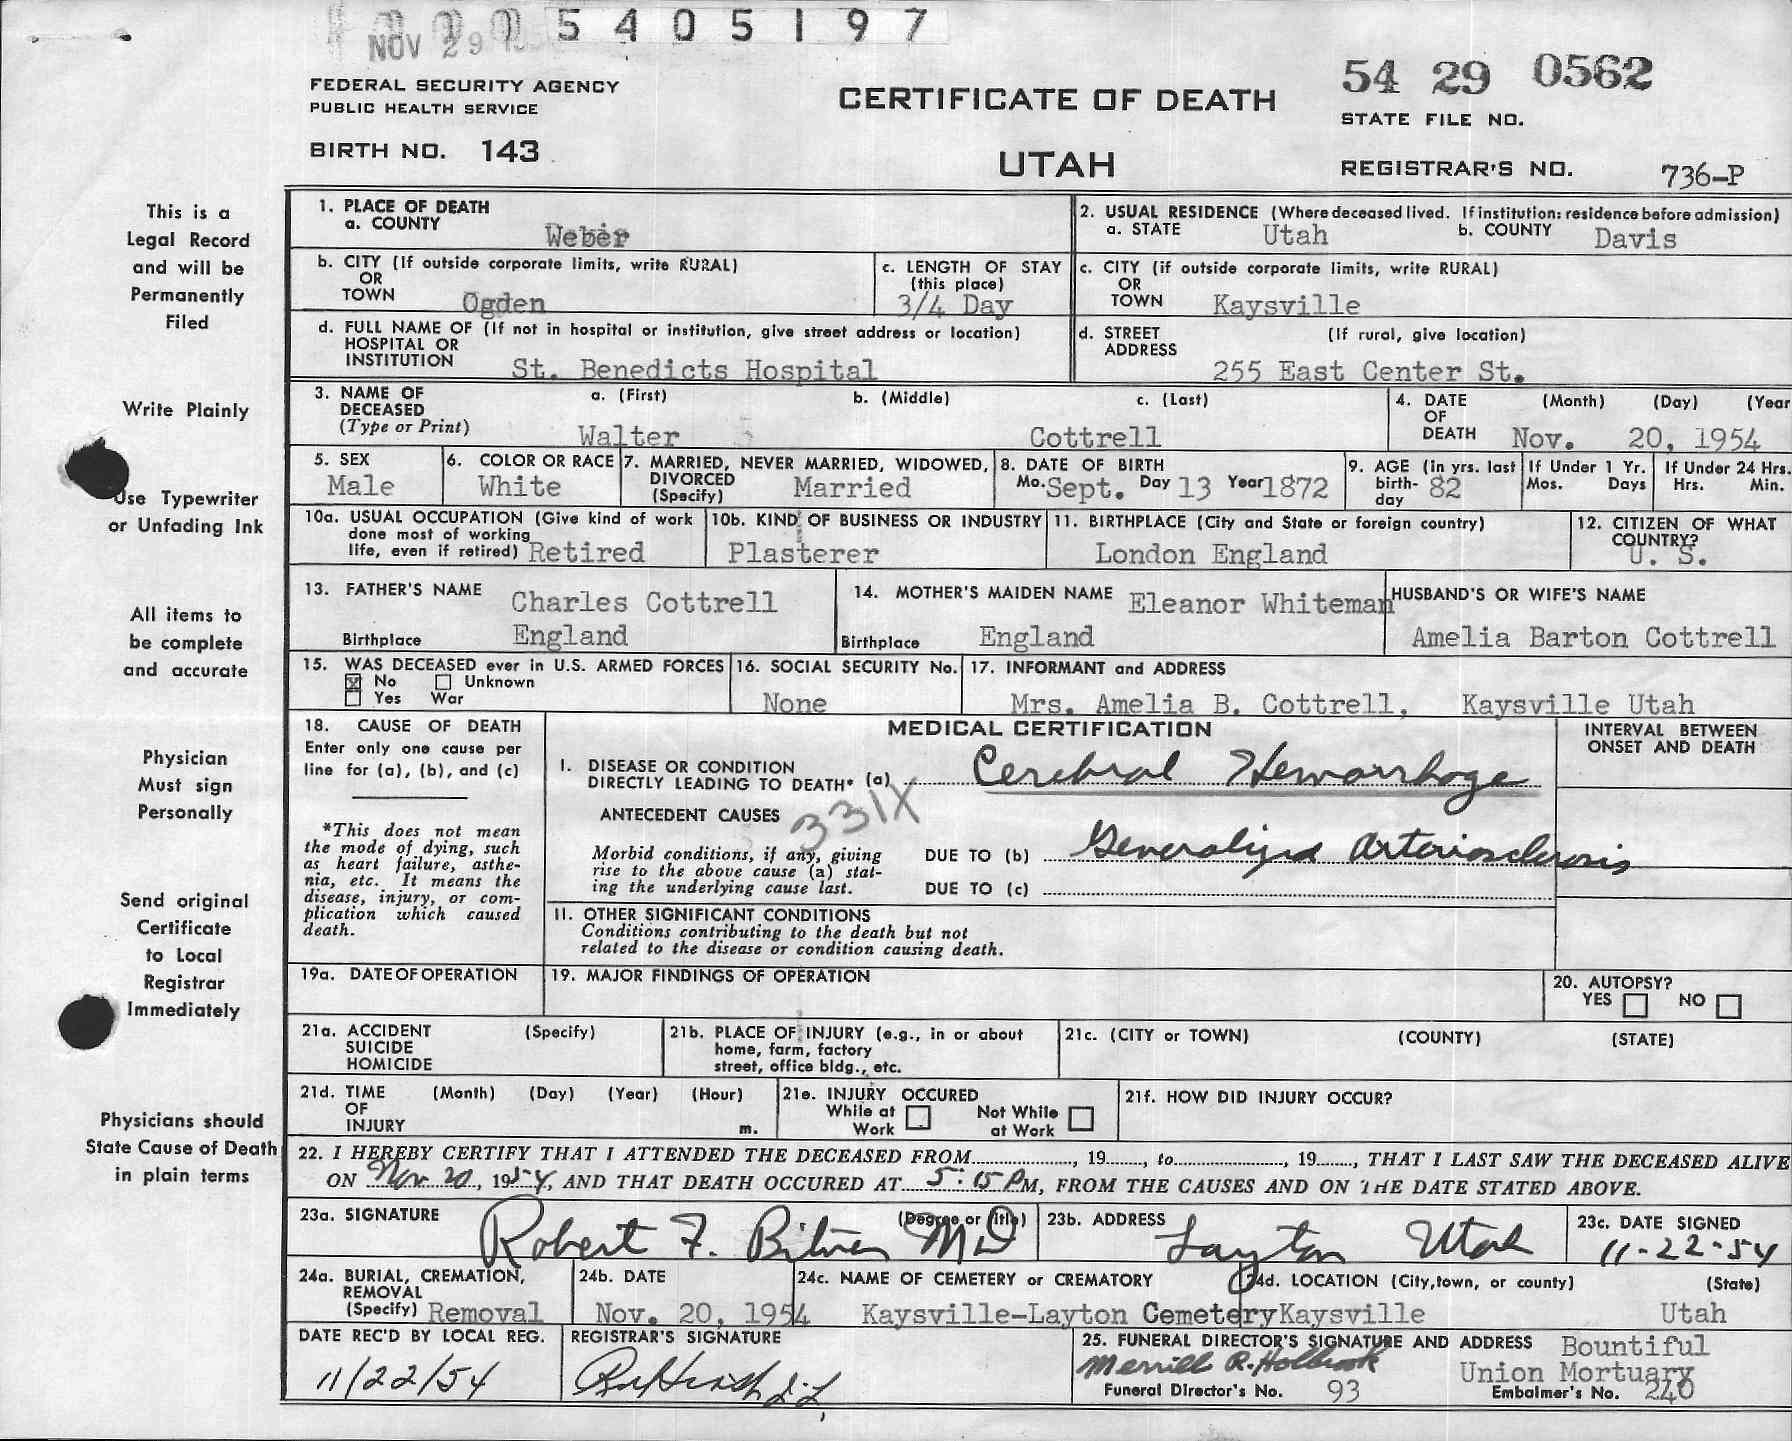 5 4 0 5 1 9 7
NOV 29
54 29 0562
FEDERAL SECURITY AGENCY
PUBLIC HEALTH SERVICE
CERTIFICATE OF DEATH
STATE FILE NO.
BIRTH NO. 143
UTAH
REGISTRAR'S NO. 736-P
This is a
Legal Record
and will be
Permanently
Filed
Write Plainly
Use Typewriter
or Unfading Ink
All items to
be complete
and accurate
Physician
Must sign
Personally
Send original
Certificate
to Local
Registrar
Immediately
Physicians should
State Cause of Death
in plain terms
1. PLACE OF DEATH
a. COUNTY Weber
2. USUAL RESIDENCE (Where deceased lived. If institution: residence before admission)
a. STATE Utah b. COUNTY Davis
b. CITY (If outside corporate limits, write RURAL)
OR
TOWN Ogden
c. LENGTH OF STAY
(this place)
3/4 Day
c. CITY (if outside corporate limits, write RURAL)
OR
TOWN Kaysville
d. FULL NAME OF (If not in hospital or institution, give street address or location)
HOSPITAL OR
INSTITUTION St. Benedicts Hospital
d. STREET (If rural, give location)
ADDRESS
255 East Center St.
3. NAME OF a. (First) b. (Middle) c. (Last)
DECEASED
(Type or Print) Walter Cottrell
4. DATE (Month) (Day) (Year
OF
DEATH Nov. 20, 1954
5. SEX
Male
6. COLOR OR RACE
White
7. MARRIED, NEVER MARRIED, WIDOWED,
DIVORCED
(Specify) Married
8. DATE OF BIRTH
Mo. Sept. Day 13 Year 1872
9. AGE (in yrs. last
birth- 82
day
If Under 1 Yr.
Mos. Days
If Under 24 Hrs.
Hrs. Min.
10a. USUAL OCCUPATION (Give kind of work
done most of working
life, even if retired) Retired
10b. KIND OF BUSINESS OR INDUSTRY
Plasterer
11. BIRTHPLACE (City and State or foreign country)
London England
12. CITIZEN OF WHAT
COUNTRY?
U. S.
13. FATHER'S NAME Charles Cottrell
Birthplace England
14. MOTHER'S MAIDEN NAME Eleanor Whiteman
Birthplace England
HUSBAND'S OR WIFE'S NAME
Amelia Barton Cottrell
15. WAS DECEASED ever in U.S. ARMED FORCES
☒ No ☐ Unknown
☐ Yes War
16. SOCIAL SECURITY No.
None
17. INFORMANT and ADDRESS
Mrs. Amelia B. Cottrell, Kaysville Utah
18. CAUSE OF DEATH
Enter only one cause per
line for (a), (b), and (c)
*This does not mean
the mode of dying, such
as heart failure, asthe-
nia, etc. It means the
disease, injury, or com-
plication which caused
death.
MEDICAL CERTIFICATION
INTERVAL BETWEEN
ONSET AND DEATH
I. DISEASE OR CONDITION
DIRECTLY LEADING TO DEATH* (a) Cerebral Hemorrhage
ANTECEDENT CAUSES 331X
Morbid conditions, if any, giving
rise to the above cause (a) stat-
ing the underlying cause last.
DUE TO (b) Generalized Arteriosclerosis
DUE TO (c)
II. OTHER SIGNIFICANT CONDITIONS
Conditions contributing to the death but not
related to the disease or condition causing death.
19a. DATE OF OPERATION
19. MAJOR FINDINGS OF OPERATION
20. AUTOPSY?
YES ☐ NO ☐
21a. ACCIDENT (Specify)
SUICIDE
HOMICIDE
21b. PLACE OF INJURY (e.g., in or about
home, farm, factory
street, office bldg., etc.
21c. (CITY or TOWN) (COUNTY) (STATE)
21d. TIME (Month) (Day) (Year) (Hour)
OF
INJURY m.
21e. INJURY OCCURED
While at ☐ Not While ☐
Work at Work
21f. HOW DID INJURY OCCUR?
22. I HEREBY CERTIFY THAT I ATTENDED THE DECEASED FROM........, 19...., to........, 19...., THAT I LAST SAW THE DECEASED ALIVE
ON Nov. 20, 1954, AND THAT DEATH OCCURED AT 5:15 PM, FROM THE CAUSES AND ON THE DATE STATED ABOVE.
23a. SIGNATURE (Degree or title)
Robert F. MD
23b. ADDRESS
Layton Utah
23c. DATE SIGNED
11-22-54
24a. BURIAL, CREMATION,
REMOVAL
(Specify) Removal
24b. DATE
Nov. 20, 1954
24c. NAME OF CEMETERY or CREMATORY
Kaysville-Layton Cemetery
24d. LOCATION (City, town, or county) (State)
Kaysville Utah
DATE REC'D BY LOCAL REG.
11/22/54
REGISTRAR'S SIGNATURE
25. FUNERAL DIRECTOR'S SIGNATURE AND ADDRESS Bountiful
Merrill R. Holbrook Union Mortuary
Funeral Director's No. 93 Embalmer's No. 240